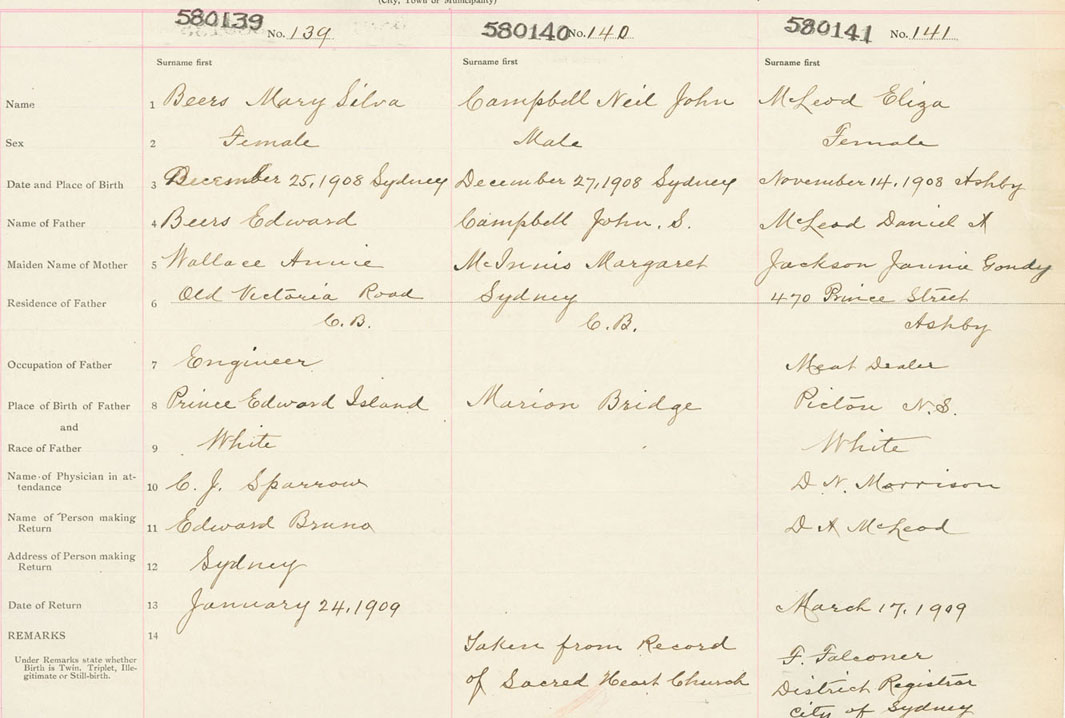 (City, Town or Municipality)
580139 No. 139 580140 No. 140 580141 No. 141
Surname first Surname first Surname first
Name 1 Beers Mary Silva Campbell Neil John McLeod Eliza
Sex 2 Female Male Female
Date and Place of Birth 3 December 25, 1908 Sydney December 27, 1908 Sydney November 14, 1908 Ashby
Name of Father 4 Beers Edward Campbell John. S. McLeod Daniel A
Maiden Name of Mother 5 Wallace Annie McInnis Margaret Jackson Jannie Gondy
Residence of Father 6 Old Victoria Road Sydney 470 Prince Street
C.B. C.B. Ashby
Occupation of Father 7 Engineer Meat Dealer
Place of Birth of Father 8 Prince Edward Island Marion Bridge Picton N.S.
and
Race of Father 9 White White
Name of Physician in at-
tendance 10 C. J. Sparrow D. N. Morrison
Name of Person making
Return 11 Edward Bruno D A McLeod
Address of Person making
Return 12 Sydney
Date of Return 13 January 24, 1909 March 17, 1909
REMARKS 14 Taken from Record F. Falconer
Under Remarks state whether
Birth is Twin, Triplet, Ille-
gitimate or Still-birth. of Sacred Heart Church District Registrar
City of Sydney